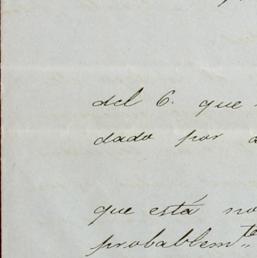 del 6. que
dado por
que está no
probablemte